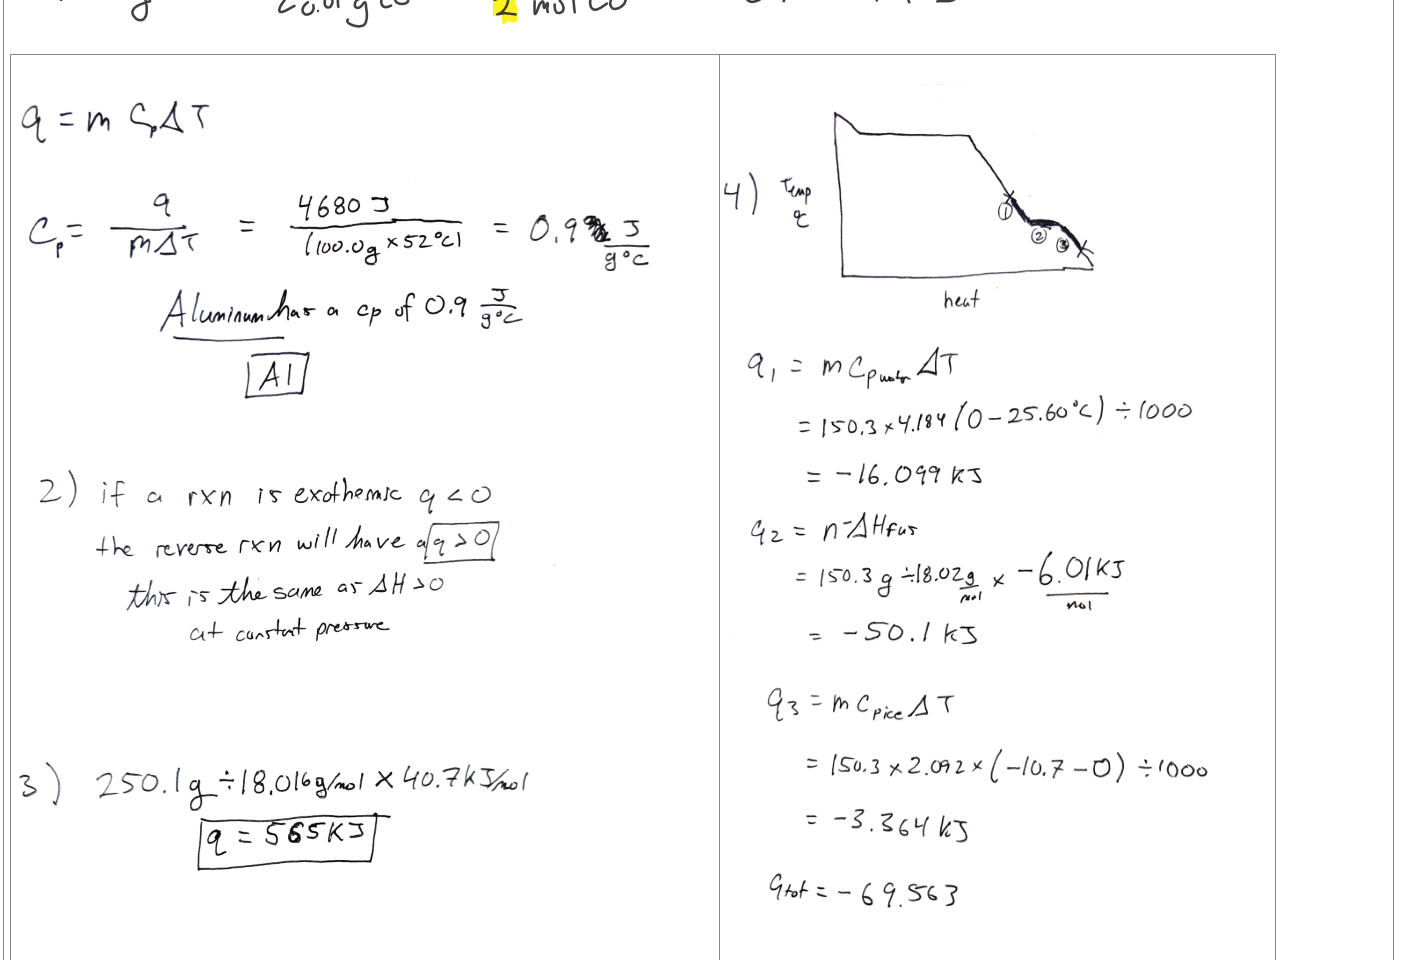 2 mol CO
q = m Cp ΔT
Cp = q / mΔT = 4680 J / (100.0g × 52°C) = 0.9 J / g°C
Aluminum has a cp of 0.9 J / g°C
Al
2) if a rxn is exothemic q < 0
the reverse rxn will have a q > 0
this is the same as ΔH > 0
at constant pressure
3) 250.1g ÷ 18.016g/mol × 40.7kJ/mol
q = 565KJ
4) Temp °C
① ② ③
heat
q1 = m Cp water ΔT
= 150.3 × 4.184 (0 - 25.60°C) ÷ 1000
= -16.099 KJ
q2 = n - ΔHfus
= 150.3 g ÷ 18.02 g/mol × -6.01KJ / mol
= -50.1 KJ
q3 = m Cp ice ΔT
= 150.3 × 2.092 × (-10.7 - 0) ÷ 1000
= -3.364 KJ
qtot = -69.563